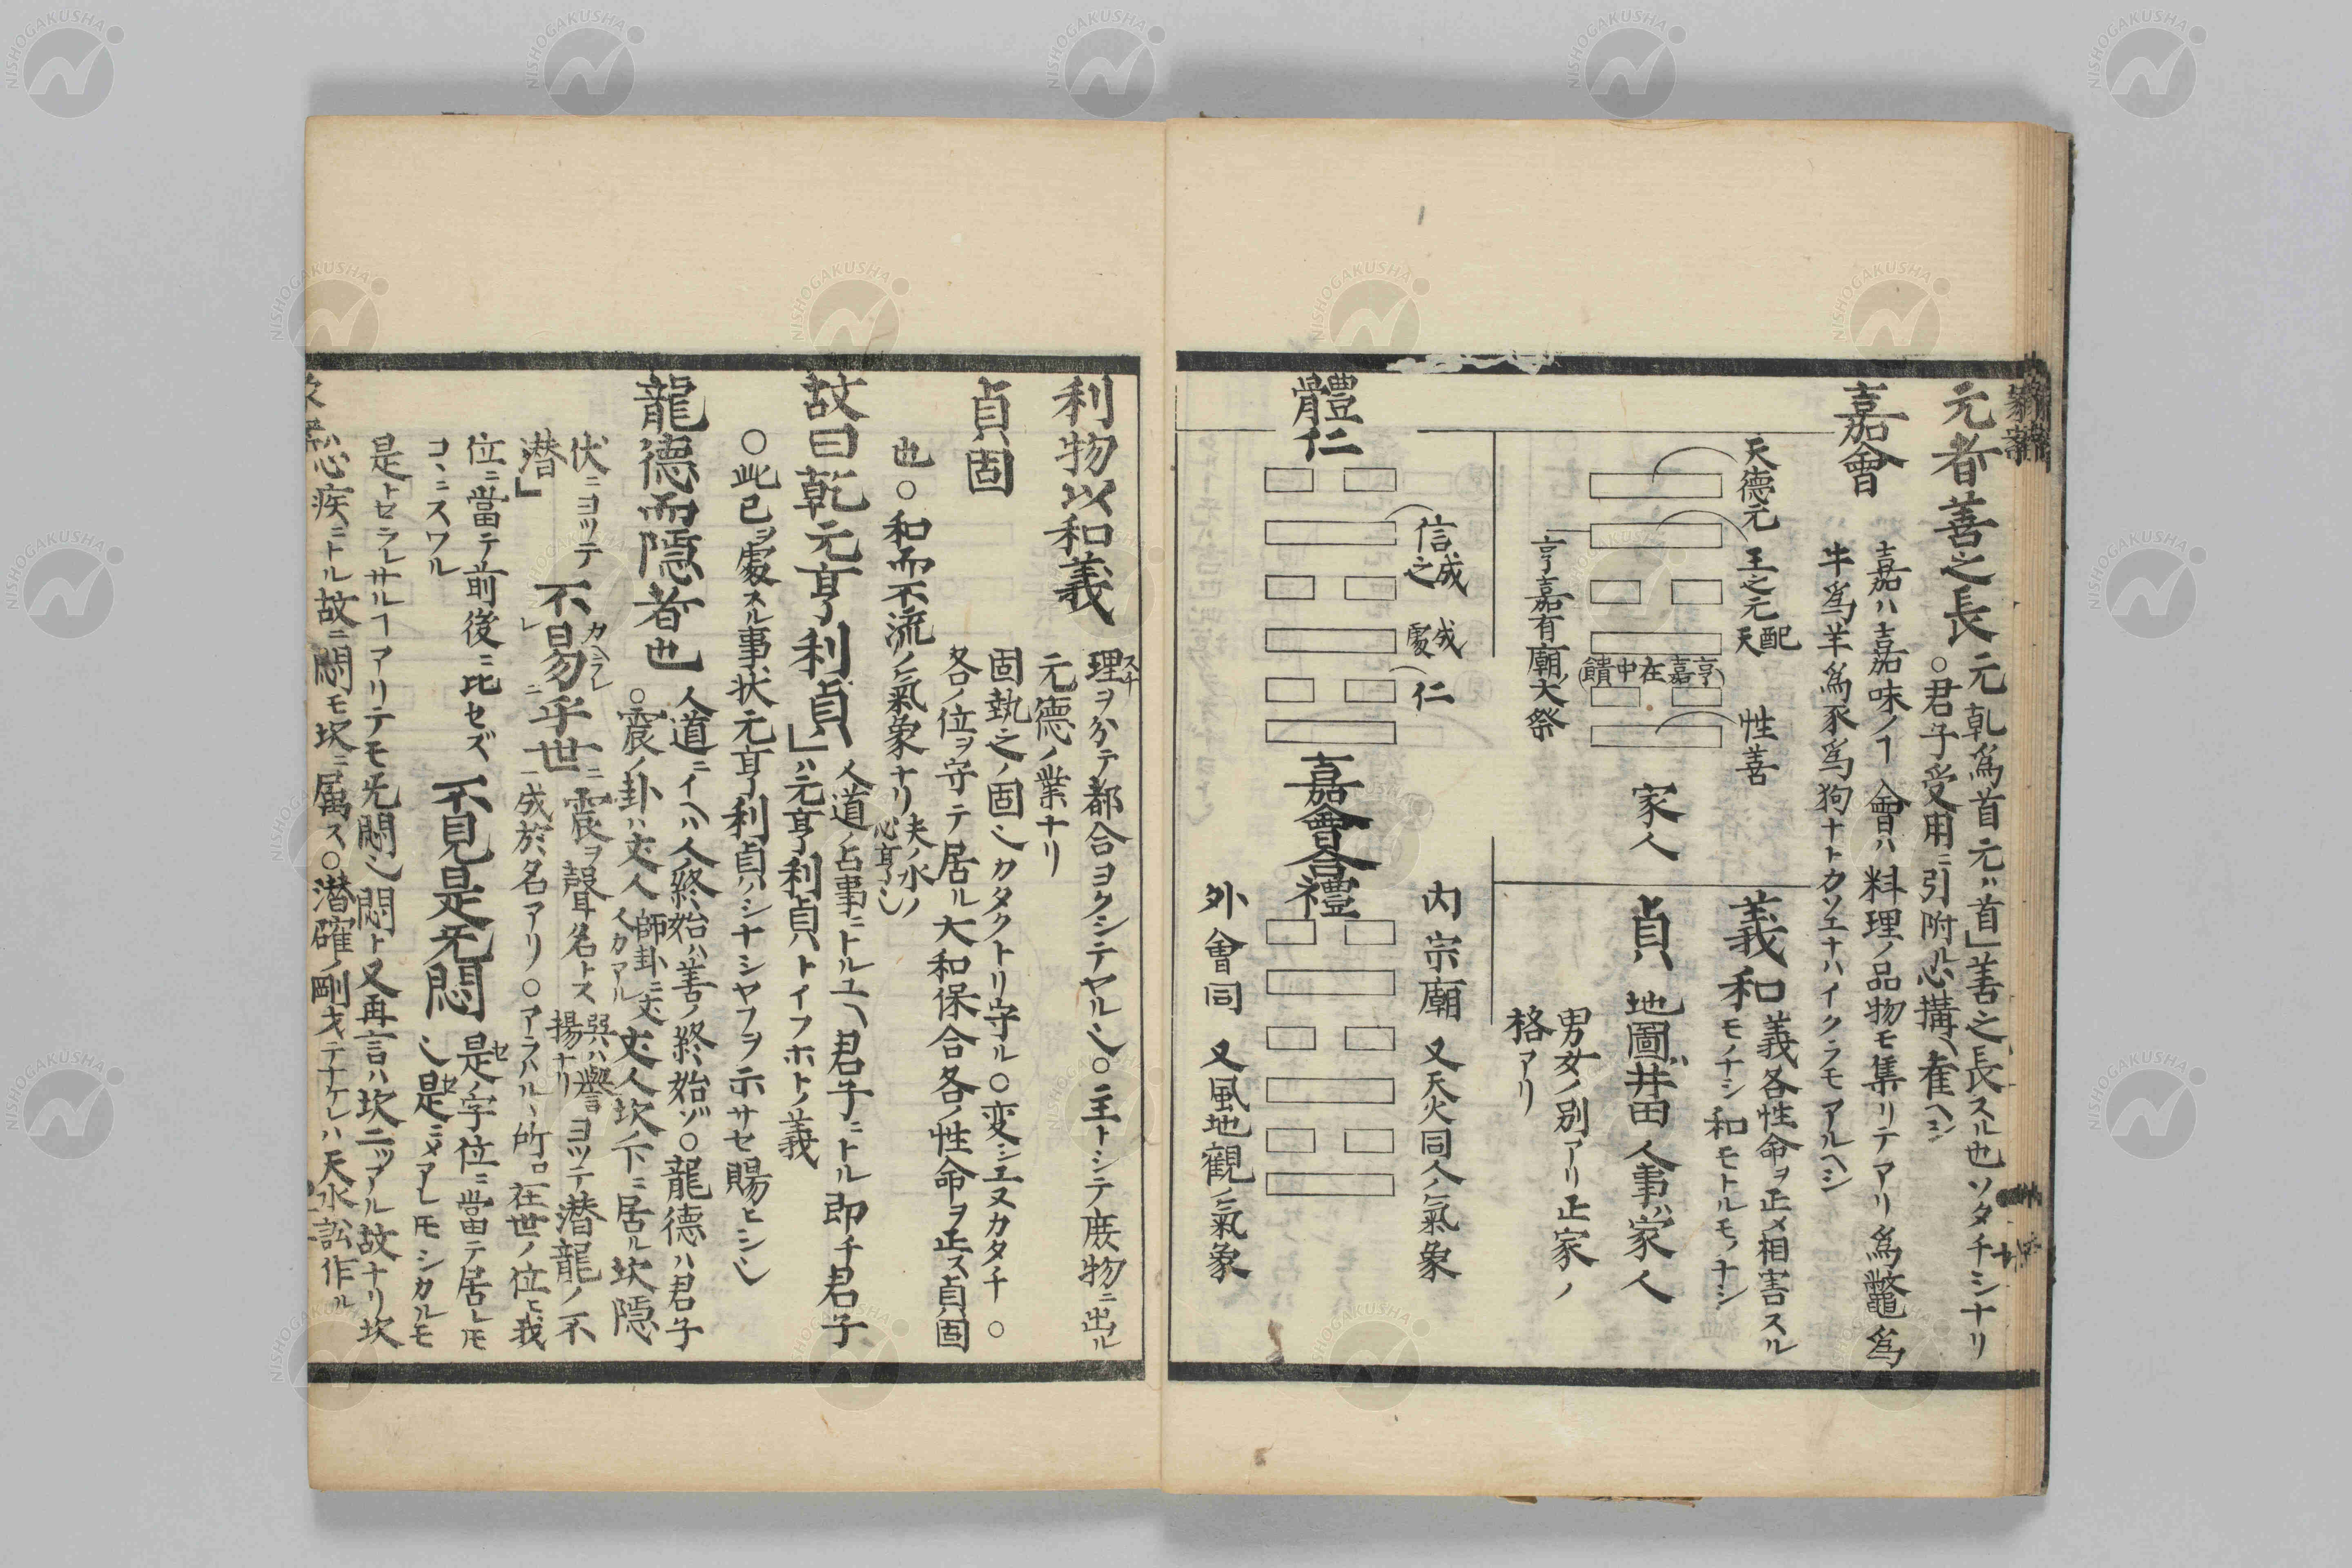 元者善之長
元乹爲首元ハ首」善之長スル也ソタチシナリ
○君子受用ニ引附ル心構、隺ヘシ
嘉會
嘉ハ嘉味ノヿ會ハ料理ノ品物モ集リテアリ爲鼈爲
牛爲羊爲豕爲狗ナトカソエナハイクラモアルヘシ
天德元
王之元
配天
性善
亨嘉在中饋
亨嘉有廟大祭
家人
義和
義各性命ヲ正〆相害スル
モノナシ和モトルモノナシ
貞
地圖井田人事ハ家人
男女ノ別アリ正家ノ
格アリ
體仁
信成之
成處
仁
嘉會合禮
内宗廟又天火同人ノ氣象
外會同又風地觀ノ氣象
利物以和義
理ヲ分テ都合ヨクシテヤル乄○主トシテ庶物ニ出ル
スチ
元德ノ業ナリ
貞固
固執之ノ固乄カタクトリ守ル○変シエヌカタチ○
各ノ位ヲ守テ居ル大和保合各ノ性命ヲ正ス貞固
也○和而不流ノ氣象ナリ
夫ノ水ノ
心亨乄
故曰乾元亨利貞」
人道ノ占事ニトルユヘ君子ニトル即チ君子
ハ元亨利貞トイフホトノ義
○此已ヲ處スル事状元亨利貞ハシナシヤフヲ示サセ賜ヒシ乄
龍德而隱者也
人道ニイヘハ人終始ハ善ノ終始ゾ○龍德ハ君子
○震ノ卦ハ丈人
師卦ニ丈
人カアル
丈人坎下ニ居ル坎隱
伏ニヨツテ
潜」
不易乎世
カヘラレ
震ヲ聲名トス
巽ハ譽
揚ナリ
ヨツテ潜龍ノ不
成於名アリ○アラハルヽ所ロ在世ノ位ヒ我
位ニ當テ前後ニ比セズ
コヽニスワル
不見是无悶
是ノ字位ニ當テ居レ𪜈
乄是ニ〆アレ𪜈シカルモ
是トセラレサルヿアリテモ无悶乄悶ト又再言ハ坎二ツアル故ナリ坎
ハ心疾ニトル故ニ悶モ坎ニ属ス○潜確ノ剛才テナケレハ天水訟作ル